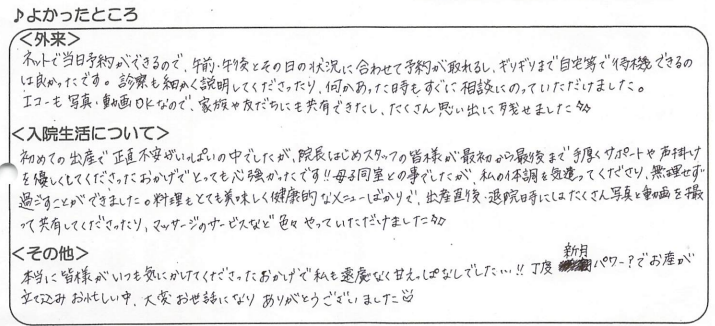 ♪よかったところ
<外来>
ネットで当日予約ができるので、午前・午後とその日の状況に合わせて予約が取れるし、ギリギリまで自宅等で待機できるの
は良かったです。診察も細かく説明してくださったり、何かあった時もすぐに相談にのっていただけました。
エコーも写真・動画OKなので、家族や友だちにも共有できたし、たくさん思い出に残せました
<入院生活について>
初めての出産で正直不安がいっぱいの中でしたが、院長はじめスタッフの皆様が最初から最後まで手厚くサポートや声掛け
を優しくしてくださったおかげでとっても心強かったです!!母子同室との事でしたが、私の体調を気遣ってくださり、無理せず
過ごすことができました。料理もとても美味しく健康的なメニューばかりで、出産直後・退院時にはたくさん写真と動画を撮
って共有してくださったり、マッサージのサービスなど色々やっていただけました
<その他>
本当に皆様がいつも気にかけてくださったおかげで私も遠慮なく甘えっぱなしでした…!!丁度新月パワー?でお産が
立て込みお忙しい中、大変お世話になりありがとうございました